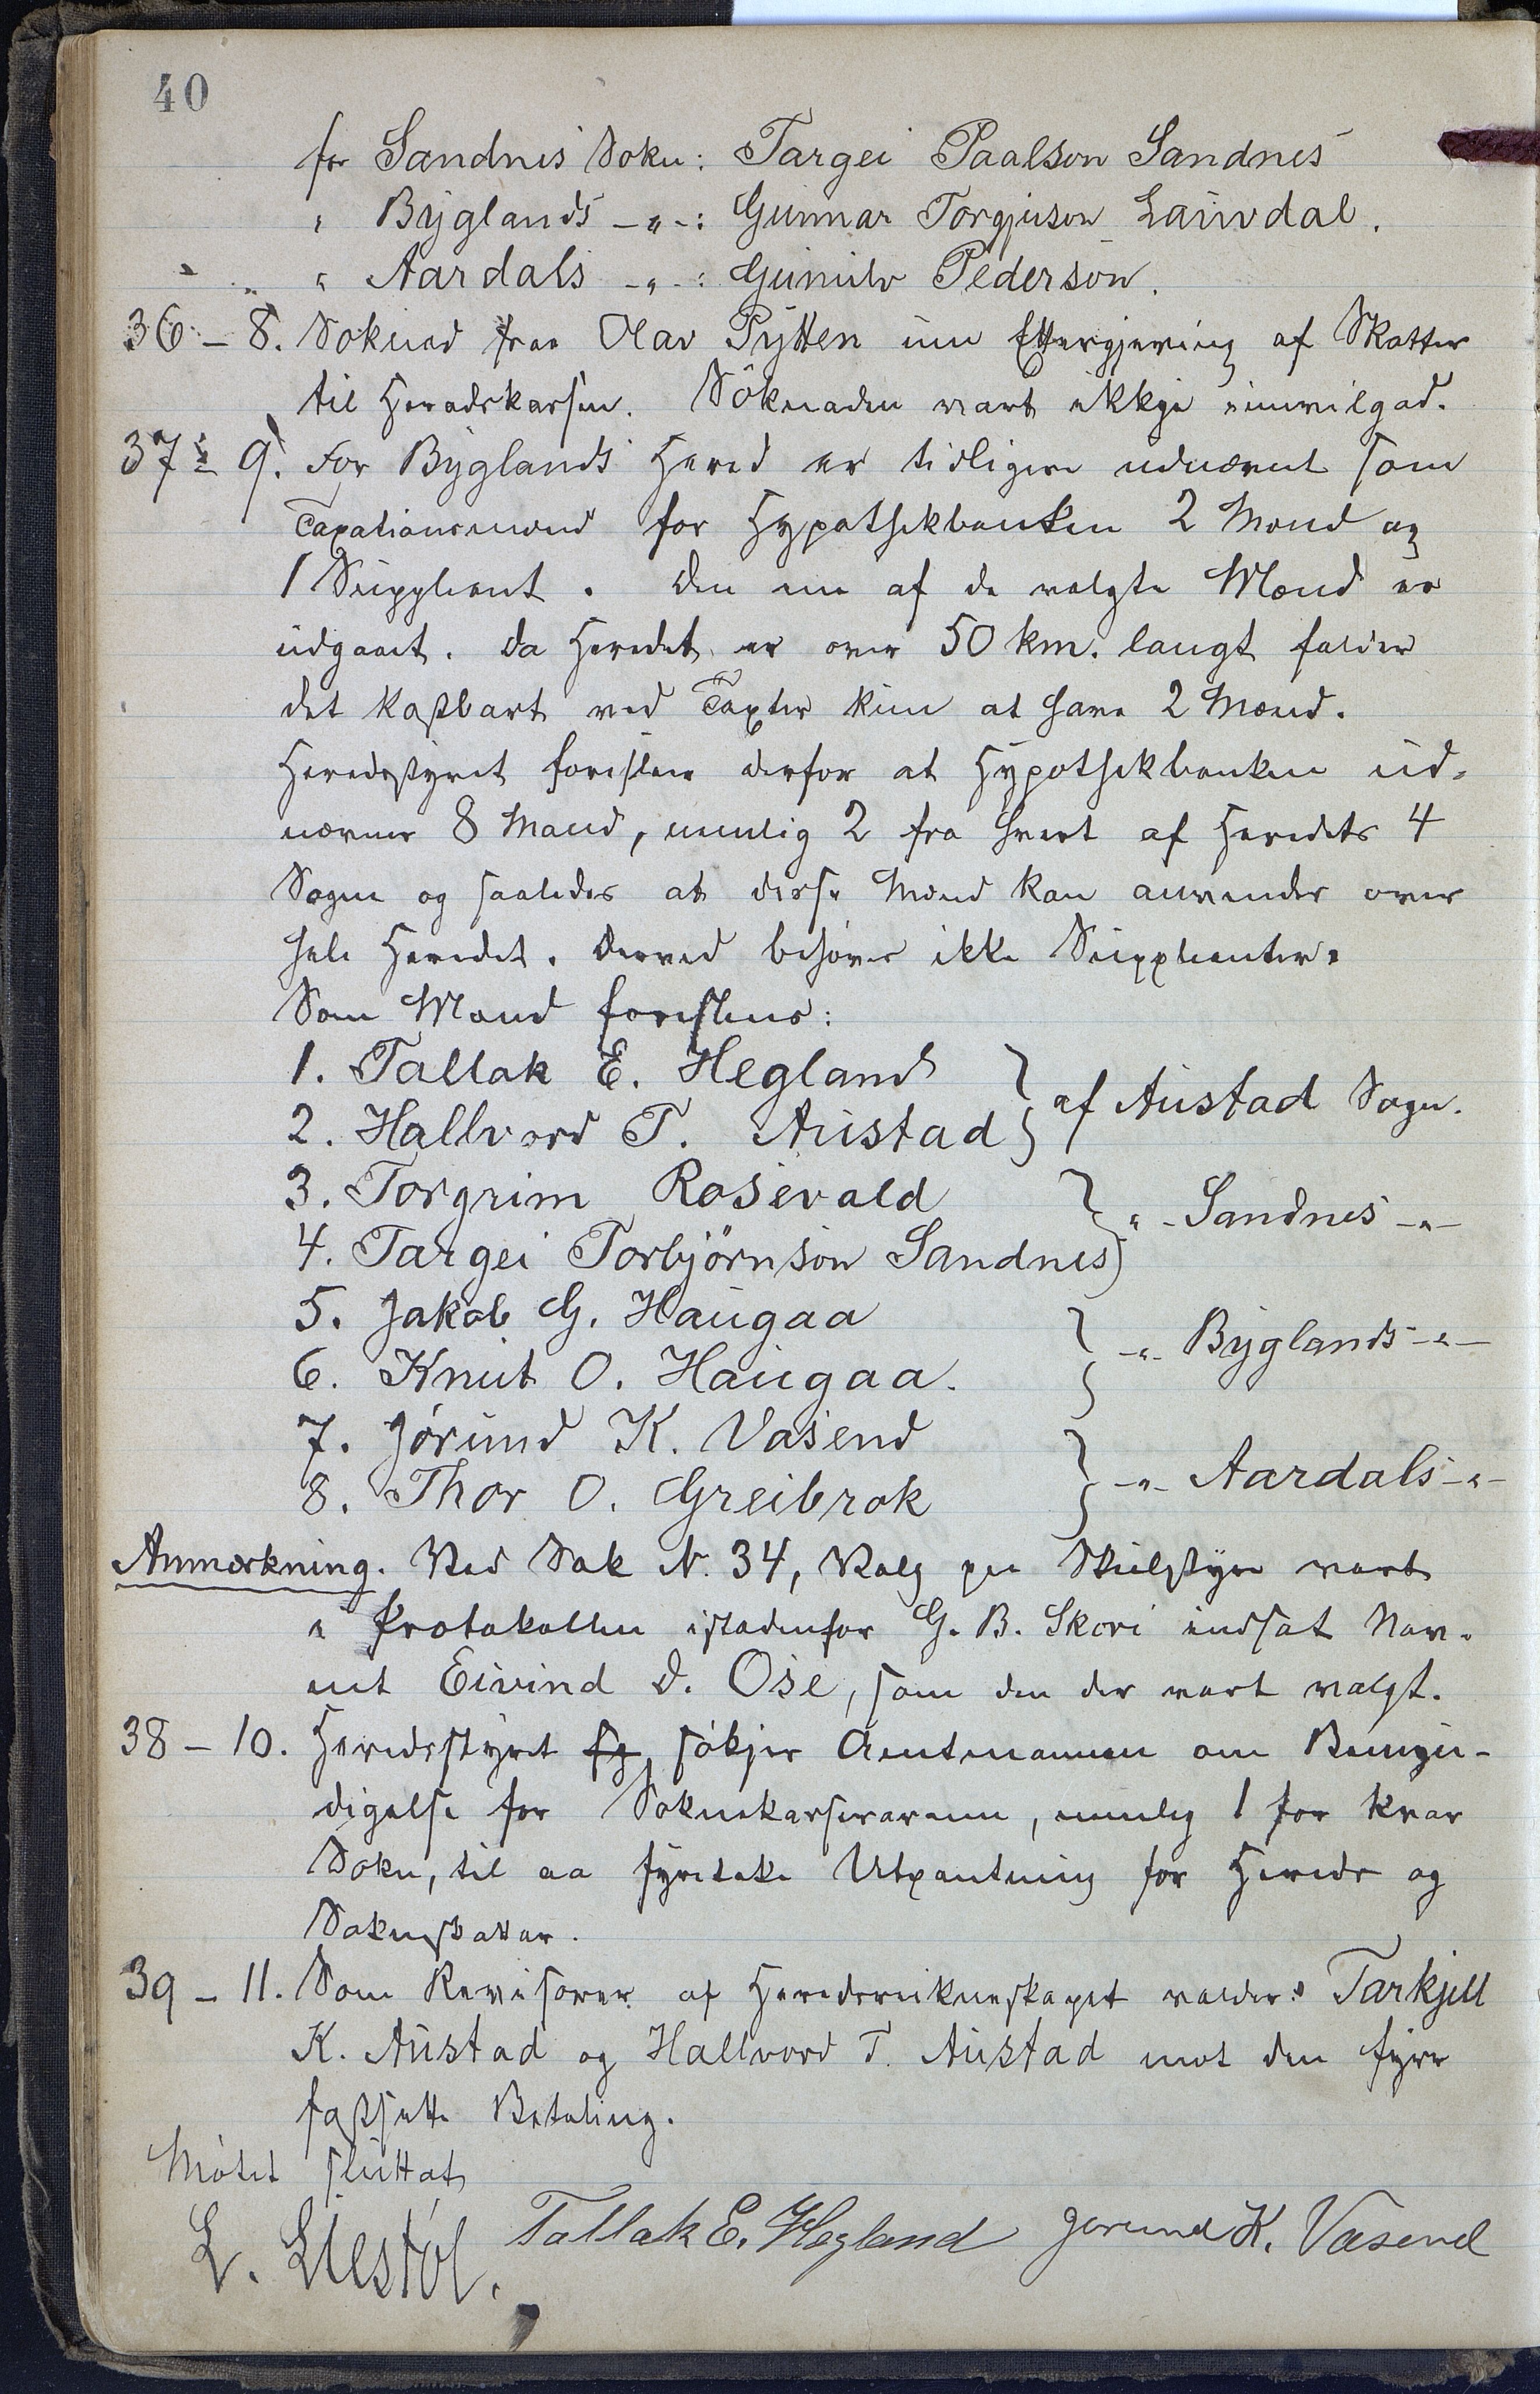 40
for Sandnes Sokn: Targei Paalson Sandnes
" Byglands -"-: Gunnar Torgjuson Lauvdal.
" Aardals -"-: Gunulv Pederson.
36 - 8. Soknad fraa Olav Pytten um Ettergjeving af Skatter
til Heradskassen. Söknaden vart ikkje innvilgad.
37 - 9. For Byglands Hered er tidligere udnævnt som
Taxationsmænd for Hypothekbanken 2 Mænd og
1 Suppleant. Den ene af de valgte Mænd er
udgaaet. Da Heredet er over 50 km. langt falder
det kostbart ved Taxter kun at have 2 Mænd.
Heredsstyret foreslaar derfor at Hypothekbanken ud-
nævner 8 Mænd, nemlig 2 fra hvert af Heredets 4
Sogne og saaledes at disse Mænd kan anvendes over
hele Heredet. Derved behøves ikke Suppleanter.
Som Mænd foreslaaes:
1. Tallak E. Hegland
2. Hallvord T. Austad } af Austad Sogn.
3. Torgrim Rosevald
4. Targei Torbjörnson Sandnes } " - Sandnes -"-
5. Jakob G. Haugaa
6. Knut O. Haugaa. } -"- Byglands -"-
7. Jørund K. Vasend
8. Thor O. Greibrok } -"- Aardals -"-
Anmærkning. Ved Sak N. 34, Valg paa Skulestyre vart
i Protokollen istadenfor G. B. Skori indsat Nav-
net Eivind D. Ose, som den der vart valgt.
38 - 10. Heredsstyret søkjer Amtmannen om Bemyn-
digelse for Soknekasserarane, nemleg 1 for kvar
Sokn, til aa fyretaka Utpantning for Hereds og
Soknskattar.
39 - 11. Som Revisorer af Heredsreikneskapet valdes Tarkjell
K. Austad og Hallvord T. Austad mot den fyrr
fastsette Betaling.
Møtet sluttat
L. Liestøl. Tallak E. Hegland Jørund K. Vasend